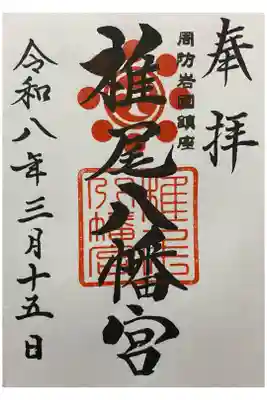 奉拝
周防岩国鎮座
椎尾八幡宮
令和八年三月十五日
椎尾八幡宮